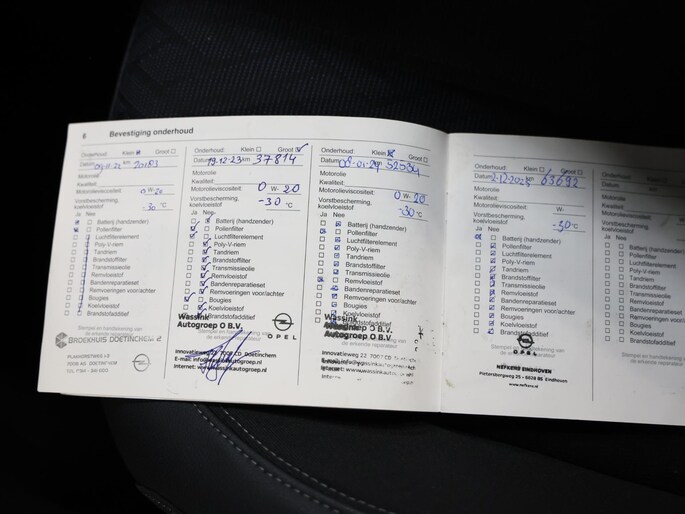 6 Bevestiging onderhoud
Onderhoud: Klein Groot
Datum km 20183
Motorolie
Kwaliteit:
Motorolieviscositeit: 0 W- 20
Vorstbescherming,
koelvloeistof -30 °C
Ja Nee
Batterij (handzender)
Pollenfilter
Luchtfilterelement
Poly-V-riem
Tandriem
Brandstoffilter
Transmissieolie
Remvloeistof
Bandenreparatieset
Remvoeringen voor/achter
Bougies
Koelvloeistof
Brandstofadditief
Stempel en handtekening van
de erkende reparateur
BROEKHUIS DOETINCHEM
Onderhoud: Klein Groot
Datum 19-12-23 km 37814
Motorolie
Kwaliteit:
Motorolieviscositeit: 0 W- 20
Vorstbescherming,
koelvloeistof -30 °C
Ja Nee
Batterij (handzender)
Pollenfilter
Luchtfilterelement
Poly-V-riem
Tandriem
Brandstoffilter
Transmissieolie
Remvloeistof
Bandenreparatieset
Remvoeringen voor/achter
Bougies
Koelvloeistof
Brandstofadditief
Wassink
Autogroep O B.V.
OPEL
Stempel en handtekening van
de erkende reparateur
Innovatieweg 22 7007 CD Doetinchem
E-mail: info@wassinkautogroep.nl
Internet: www.wassinkautogroep.nl
Onderhoud: Klein Groot
Datum km
Motorolie
Kwaliteit:
Motorolieviscositeit: 0 W- 20
Vorstbescherming,
koelvloeistof -30 °C
Ja Nee
Batterij (handzender)
Pollenfilter
Luchtfilterelement
Poly-V-riem
Tandriem
Brandstoffilter
Transmissieolie
Remvloeistof
Bandenreparatieset
Remvoeringen voor/achter
Bougies
Koelvloeistof
Brandstofadditief
Wassink
Autogroep O B.V.
Innovatieweg 22 7007 CD
Onderhoud: Klein Groot
Datum 2-12-2025 km 63692
Motorolie
Kwaliteit:
Motorolieviscositeit: W-
Vorstbescherming,
koelvloeistof -30 °C
Ja Nee
Batterij (handzender)
Pollenfilter
Luchtfilterelement
Poly-V-riem
Tandriem
Brandstoffilter
Transmissieolie
Remvloeistof
Bandenreparatieset
Remvoeringen voor/achter
Bougies
Koelvloeistof
Brandstofadditief
OPEL
NEFKENS EINDHOVEN
Pietersbergweg 25 - 5628 BS Eindhoven
www.nefkens.nl
Onderhoud:
Datum
Motorolie
Kwaliteit:
Motorolieviscositeit:
Vorstbescherming,
koelvloeistof
Ja Nee
Batterij (handzender)
Pollenfilter
Luchtfilterelement
Poly-V-riem
Tandriem
Brandstoffilter
Transmissieolie
Remvloeistof
Bandenreparatieset
Remvoeringen voor/achter
Bougies
Koelvloeistof
Brandstofadditief
Stempel en handtekening van
de erkende reparateur